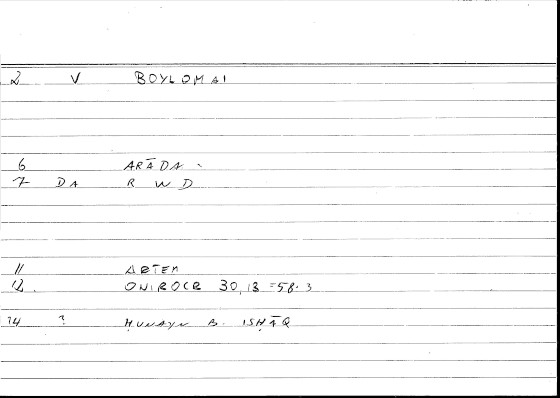 2 V BOYLOMAI
6 ARĀDA -
7 DA R W D
11 ARTEM
12. ONIROCR 30,13 = 58.3
14 ? ḤUNAYN B. ISḤĀQ